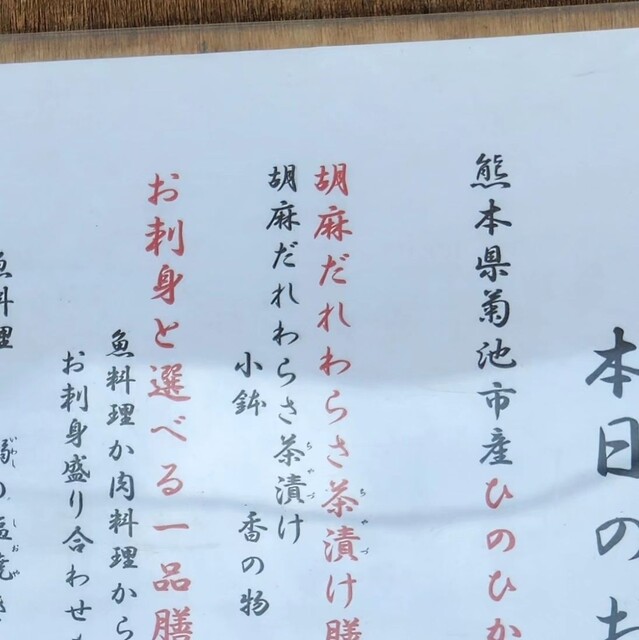 本日のお
熊本県菊池市産ひのひか
胡麻だれわらさ茶漬け膳
胡麻だれわらさ茶漬け
小鉢　香の物
お刺身と選べる一品膳
魚料理か肉料理から
お刺身盛り合わせ
魚料理